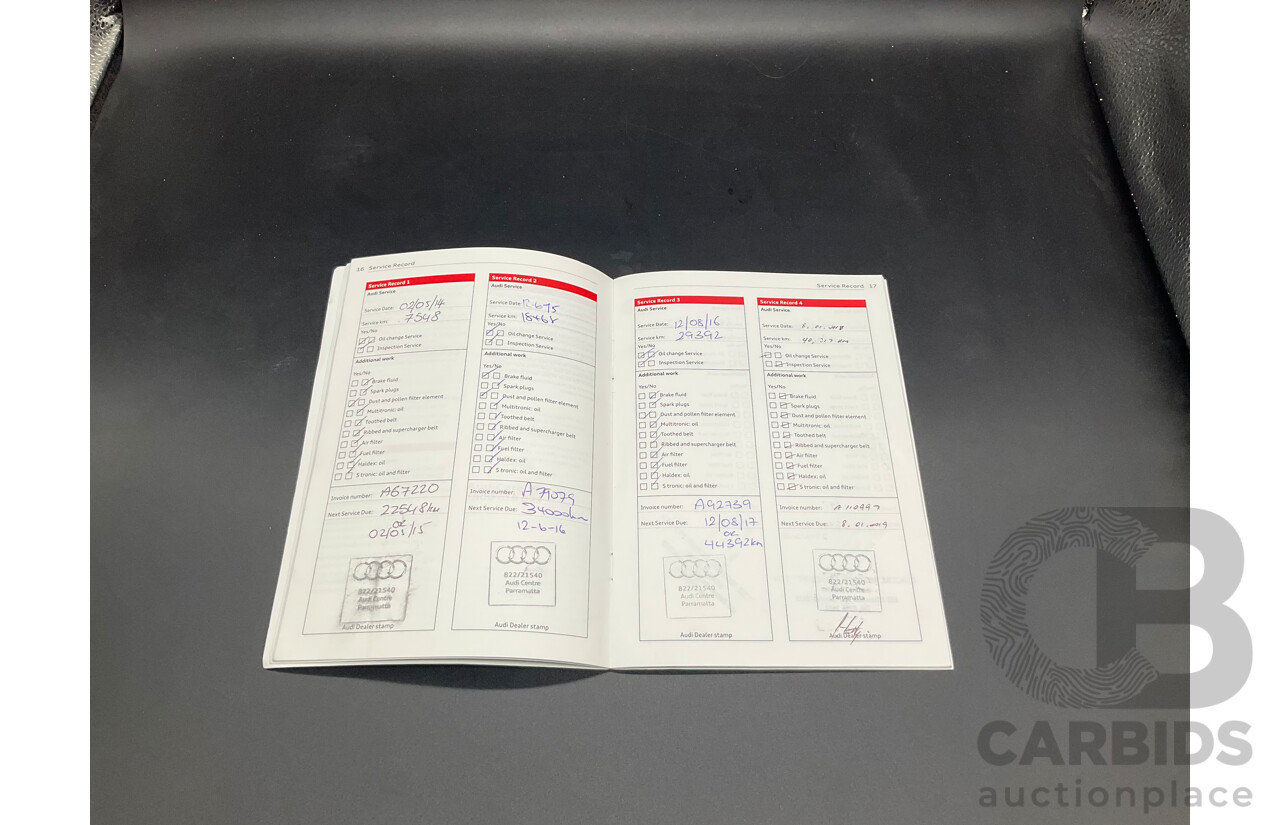 16 Service Record
Service Record 1
Audi Service
Service Date: 02/05/14
Service km: 7548
Yes/No
Oil change Service
Inspection Service
Additional work
Yes/No
Brake fluid
Spark plugs
Dust and pollen filter element
Multitronic: oil
Toothed belt
Ribbed and supercharger belt
Air filter
Fuel filter
Haldex: oil
S tronic: oil and filter
Invoice number: A67220
Next Service Due: 22548km
or
02/05/15
B22/21540
Audi Centre
Parramatta
Audi Dealer stamp
Service Record 2
Audi Service
Service Date:
Service km:
Yes/No
Oil change Service
Inspection Service
Additional work
Yes/No
Brake fluid
Spark plugs
Dust and pollen filter element
Multitronic: oil
Toothed belt
Ribbed and supercharger belt
Air filter
Fuel filter
Haldex: oil
S tronic: oil and filter
Invoice number: A79079
Next Service Due: 34000km
12-6-16
B22/21540
Audi Centre
Parramatta
Audi Dealer stamp
Service Record 17
Service Record 3
Audi Service
Service Date: 12/08/16
Service km: 29392
Yes/No
Oil change Service
Inspection Service
Additional work
Yes/No
Brake fluid
Spark plugs
Dust and pollen filter element
Multitronic: oil
Toothed belt
Ribbed and supercharger belt
Air filter
Fuel filter
Haldex: oil
S tronic: oil and filter
Invoice number: A92739
Next Service Due: 12/08/17
or
44392km
B22/21540
Audi Centre
Parramatta
Audi Dealer stamp
Service Record 4
Audi Service
Service Date:
Service km:
Yes/No
Oil change Service
Inspection Service
Additional work
Yes/No
Brake fluid
Spark plugs
Dust and pollen filter element
Multitronic: oil
Toothed belt
Ribbed and supercharger belt
Air filter
Fuel filter
Haldex: oil
S tronic: oil and filter
Invoice number:
Next Service Due: 8.01.2019
B22/21540
Audi Centre
Parramatta
Audi Dealer stamp
CB
CARBIDS
auctionplace